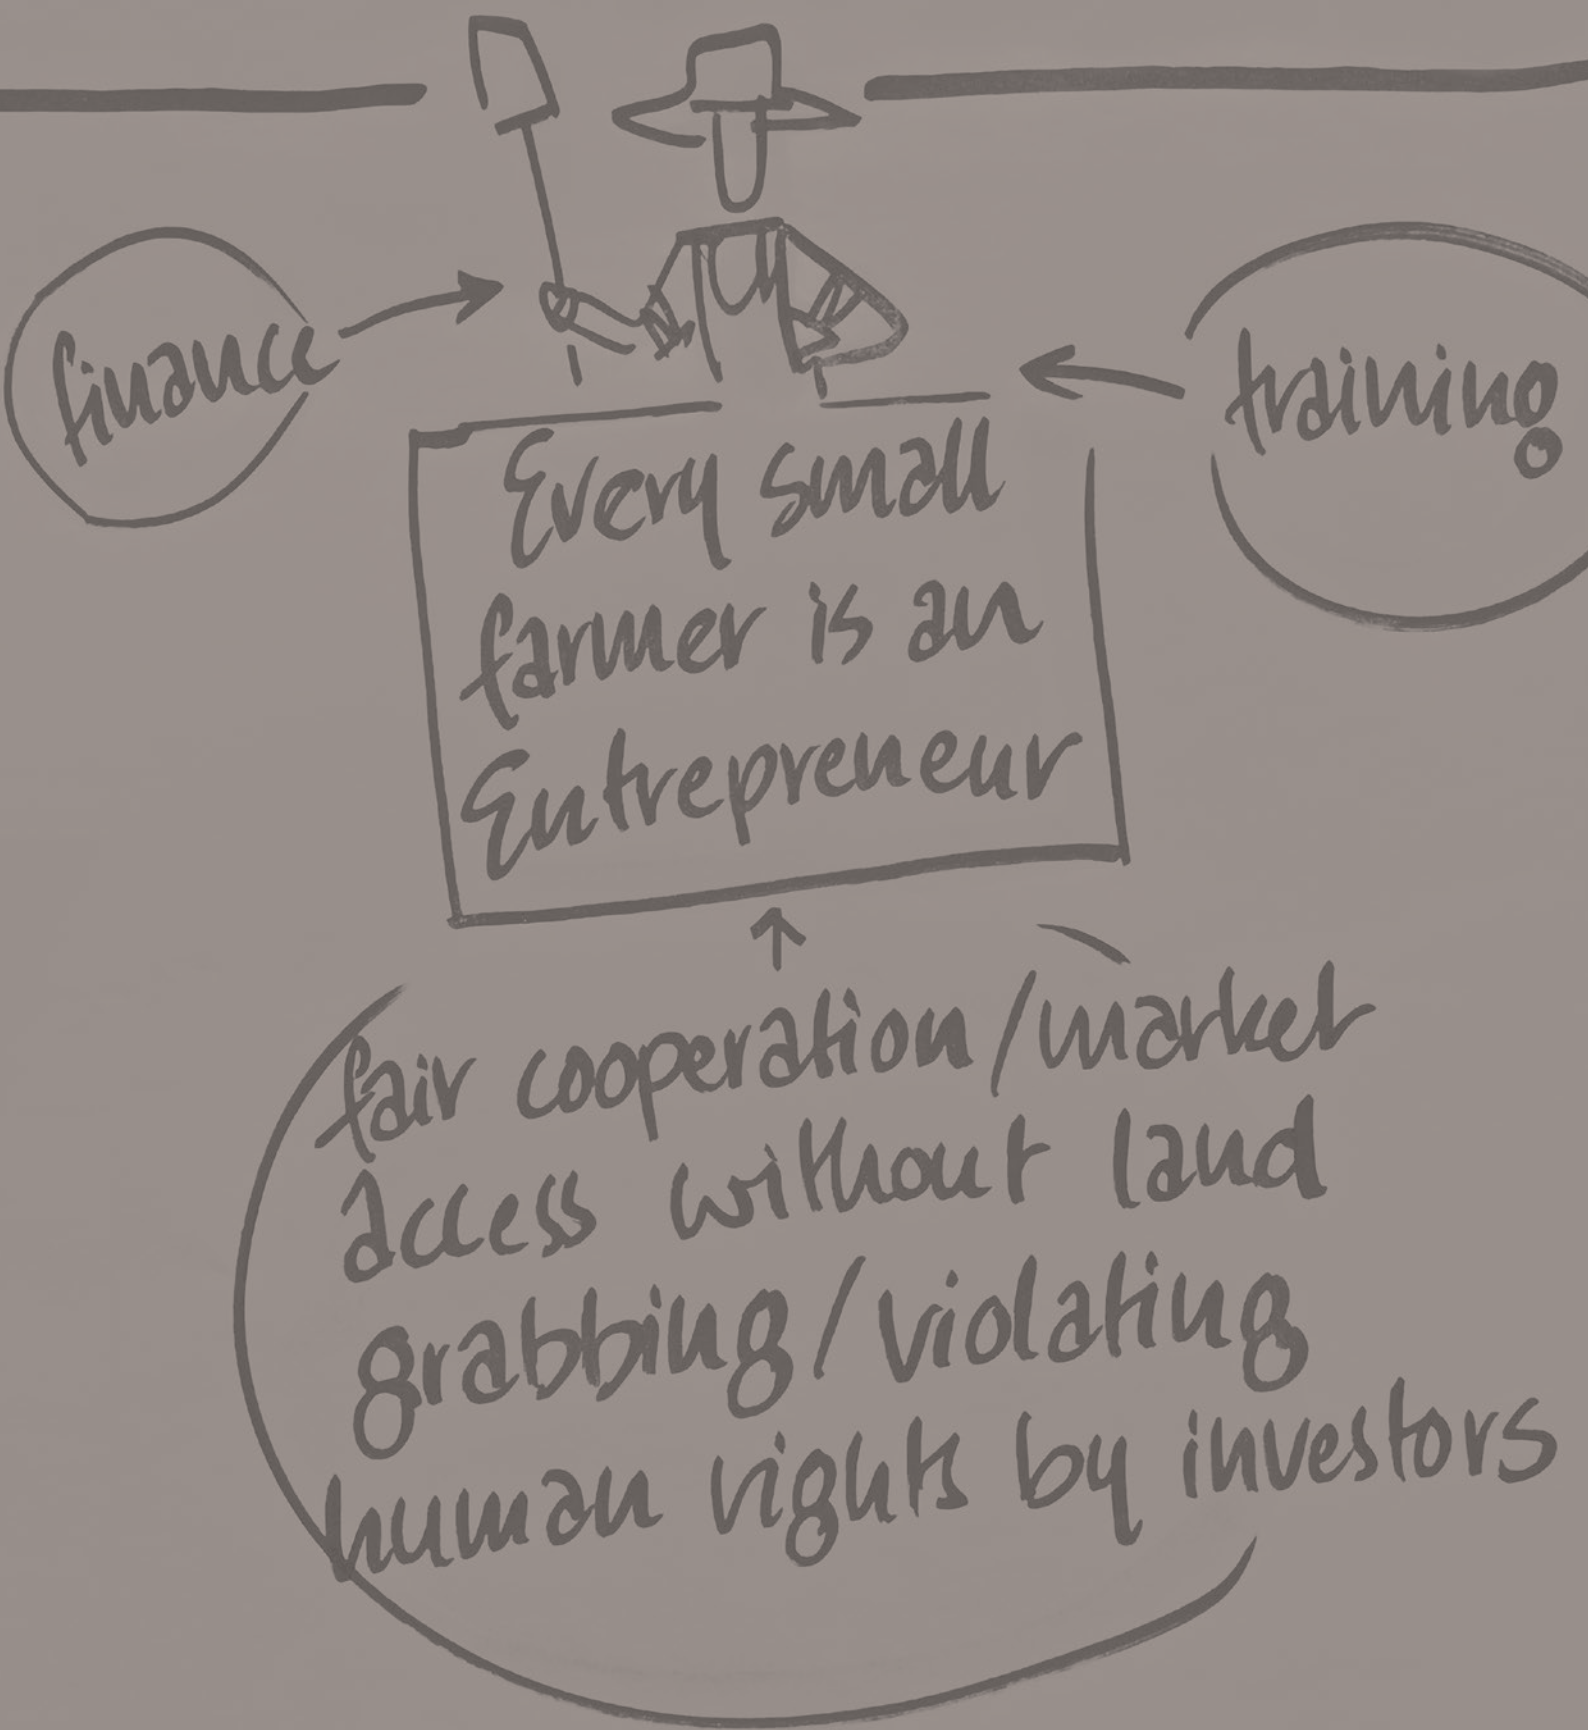 finance
training
Every small
farmer is an
Entrepreneur
fair cooperation/market
access without land
grabbing/violating
human rights by investors